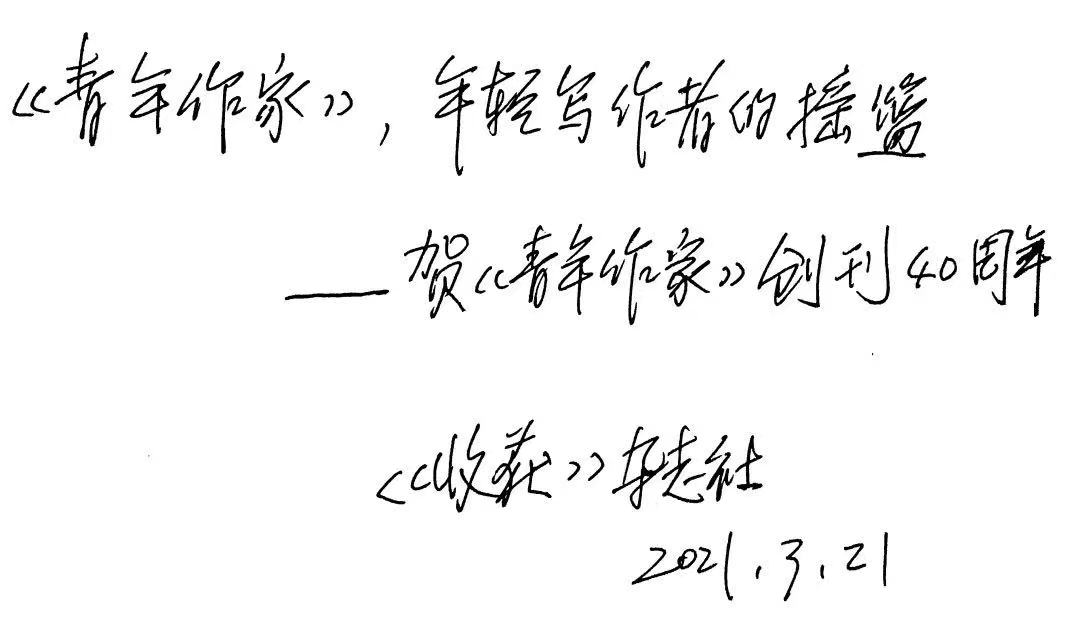 《青年作家》，年轻写作者的摇篮
——贺《青年作家》创刊40周年
《收获》杂志社
2021.3.21